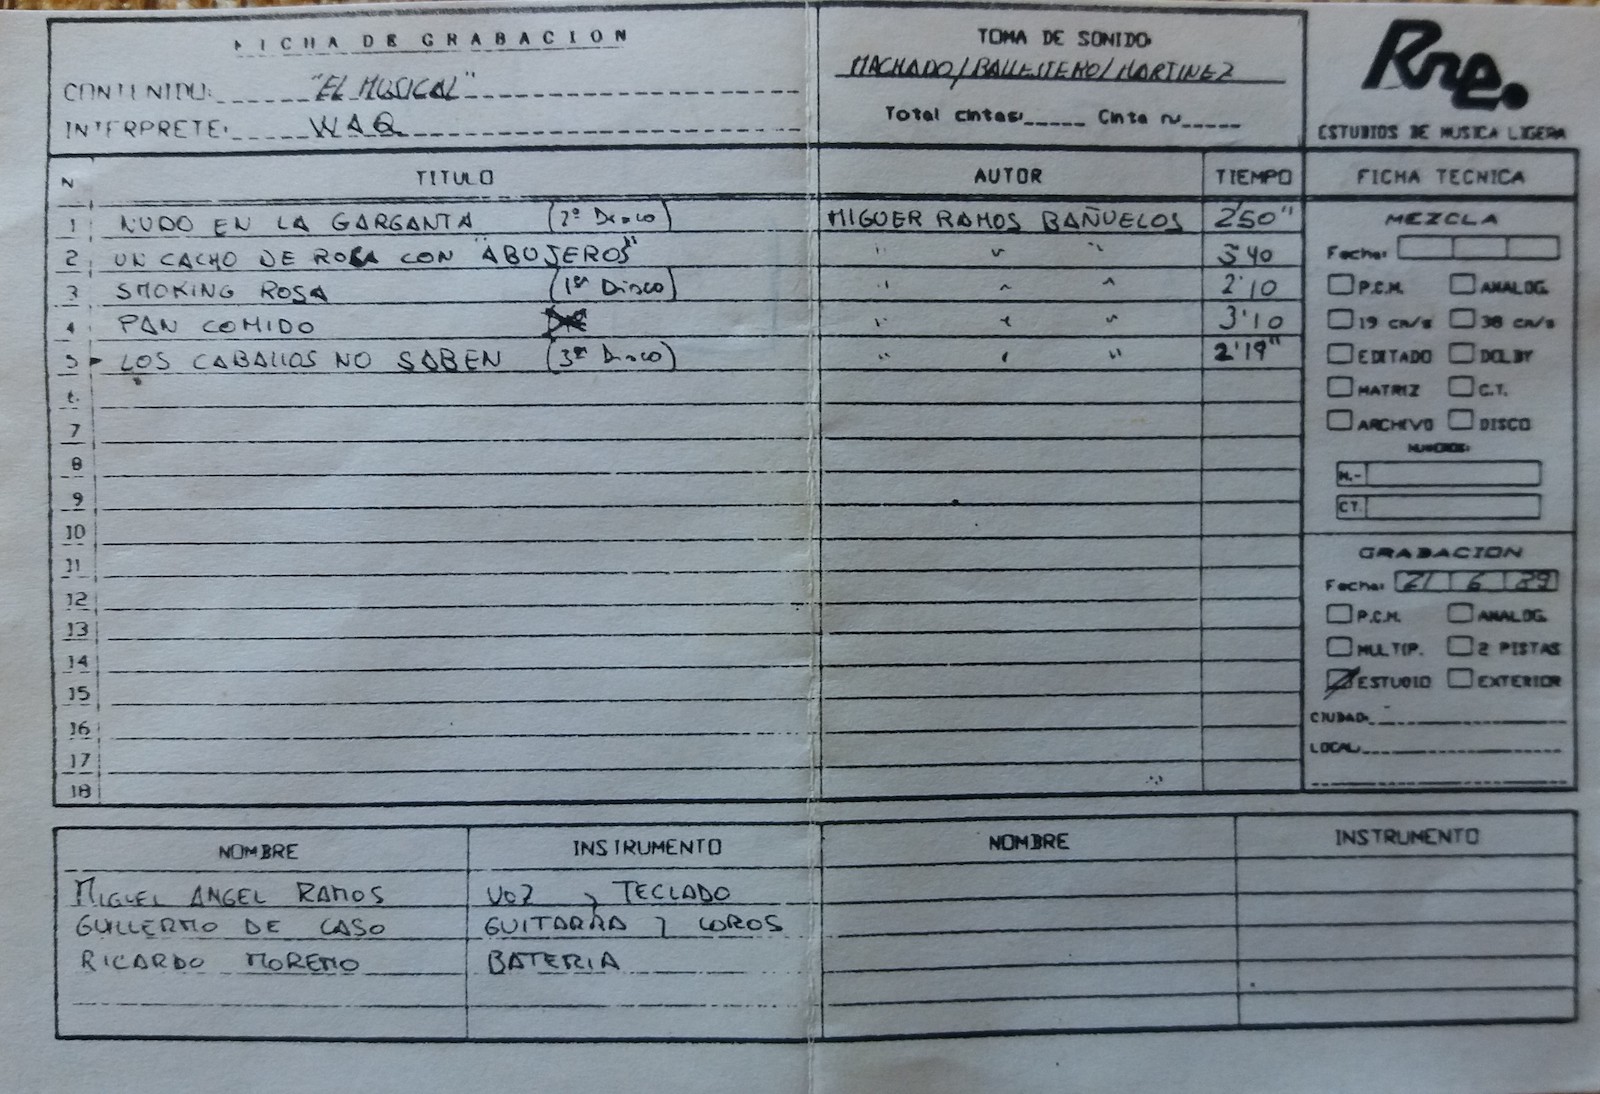 FICHA DE GRABACION
CONTENIDO: "EL MUSICAL"
INTERPRETE: WAQ
TOMA DE SONIDO:
MACHADO/BALLESTERO/MARTINEZ
Total cintas: Cinta nº
Rne.
ESTUDIOS DE MUSICA LIGERA
N TITULO AUTOR TIEMPO
1 NUDO EN LA GARGANTA (2º Disco) MIGUER RAMOS BAÑUELOS 2'50"
2 UN CACHO DE ROSA CON "ABUJEROS" " " " 3'40
3 SMOKING ROSA (1er Disco) " " " 2'10
4 PAN COMIDO " " " 3'10
5 LOS CABALLOS NO SABEN (3er Disco) " " " 2'19"
6
7
8
9
10
11
12
13
14
15
16
17
18
FICHA TECNICA
MEZCLA
Fecha:
P.C.M. ANALOG.
19 cm/s 38 cm/s
EDITADO DOLBY
MATRIZ C.T.
ARCHIVO DISCO
NUMEROS:
M.-
CT.
GRABACION
Fecha: 21 6 89
P.C.M. ANALOG.
MULTIP. 2 PISTAS
ESTUDIO EXTERIOR
CIUDAD:
LOCAL:
NOMBRE INSTRUMENTO NOMBRE INSTRUMENTO
MIGUEL ANGEL RAMOS VOZ y TECLADO
GUILLERMO DE CASO GUITARRA y COROS
RICARDO MORENO BATERIA